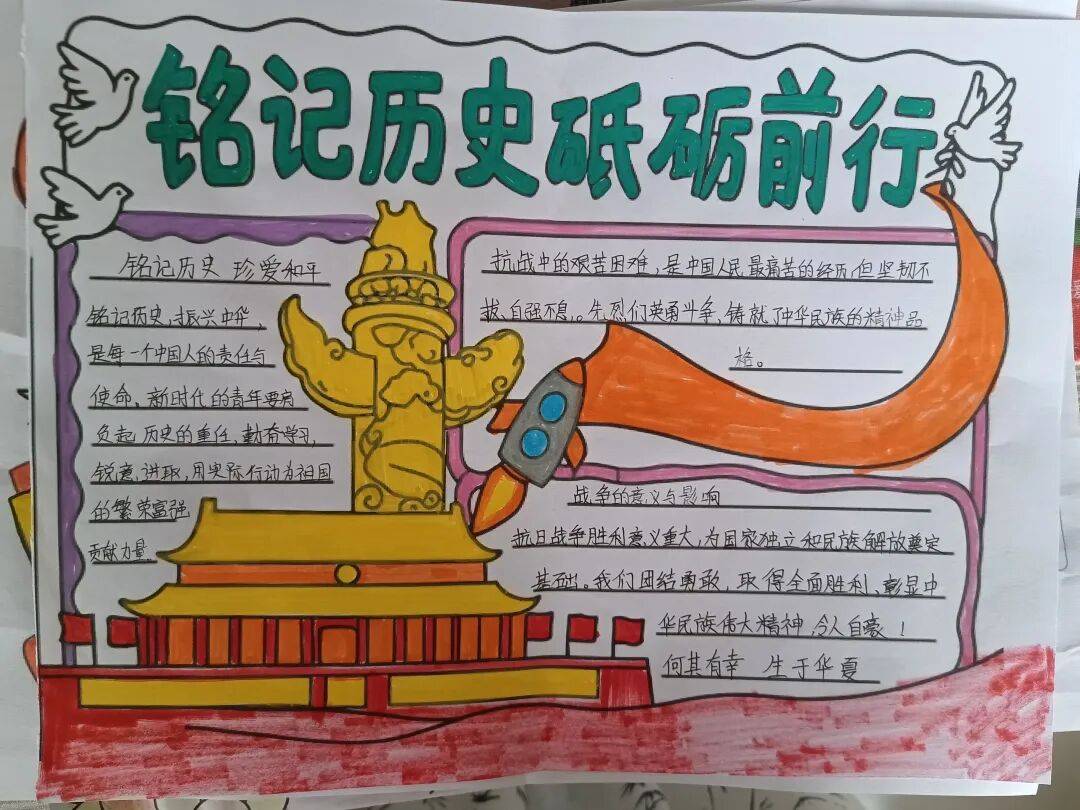 铭记历史砥砺前行
铭记历史 珍爱和平
铭记历史,振兴中华,
是每一个中国人的责任与
使命,新时代的青年要肩
负起历史的重任,勤奋学习,
锐意进取,用实际行动为祖国
的繁荣富强
贡献力量
抗战中的艰苦困难,是中国人民最痛苦的经历,但坚韧不
拔、自强不息。先烈们英勇斗争,铸就了中华民族的精神品
格。
战争的意义与影响
抗日战争胜利意义重大,为国家独立和民族解放奠定
基础。我们团结勇敢,取得全面胜利,彰显中
华民族伟大精神,令人自豪!
何其有幸 生于华夏